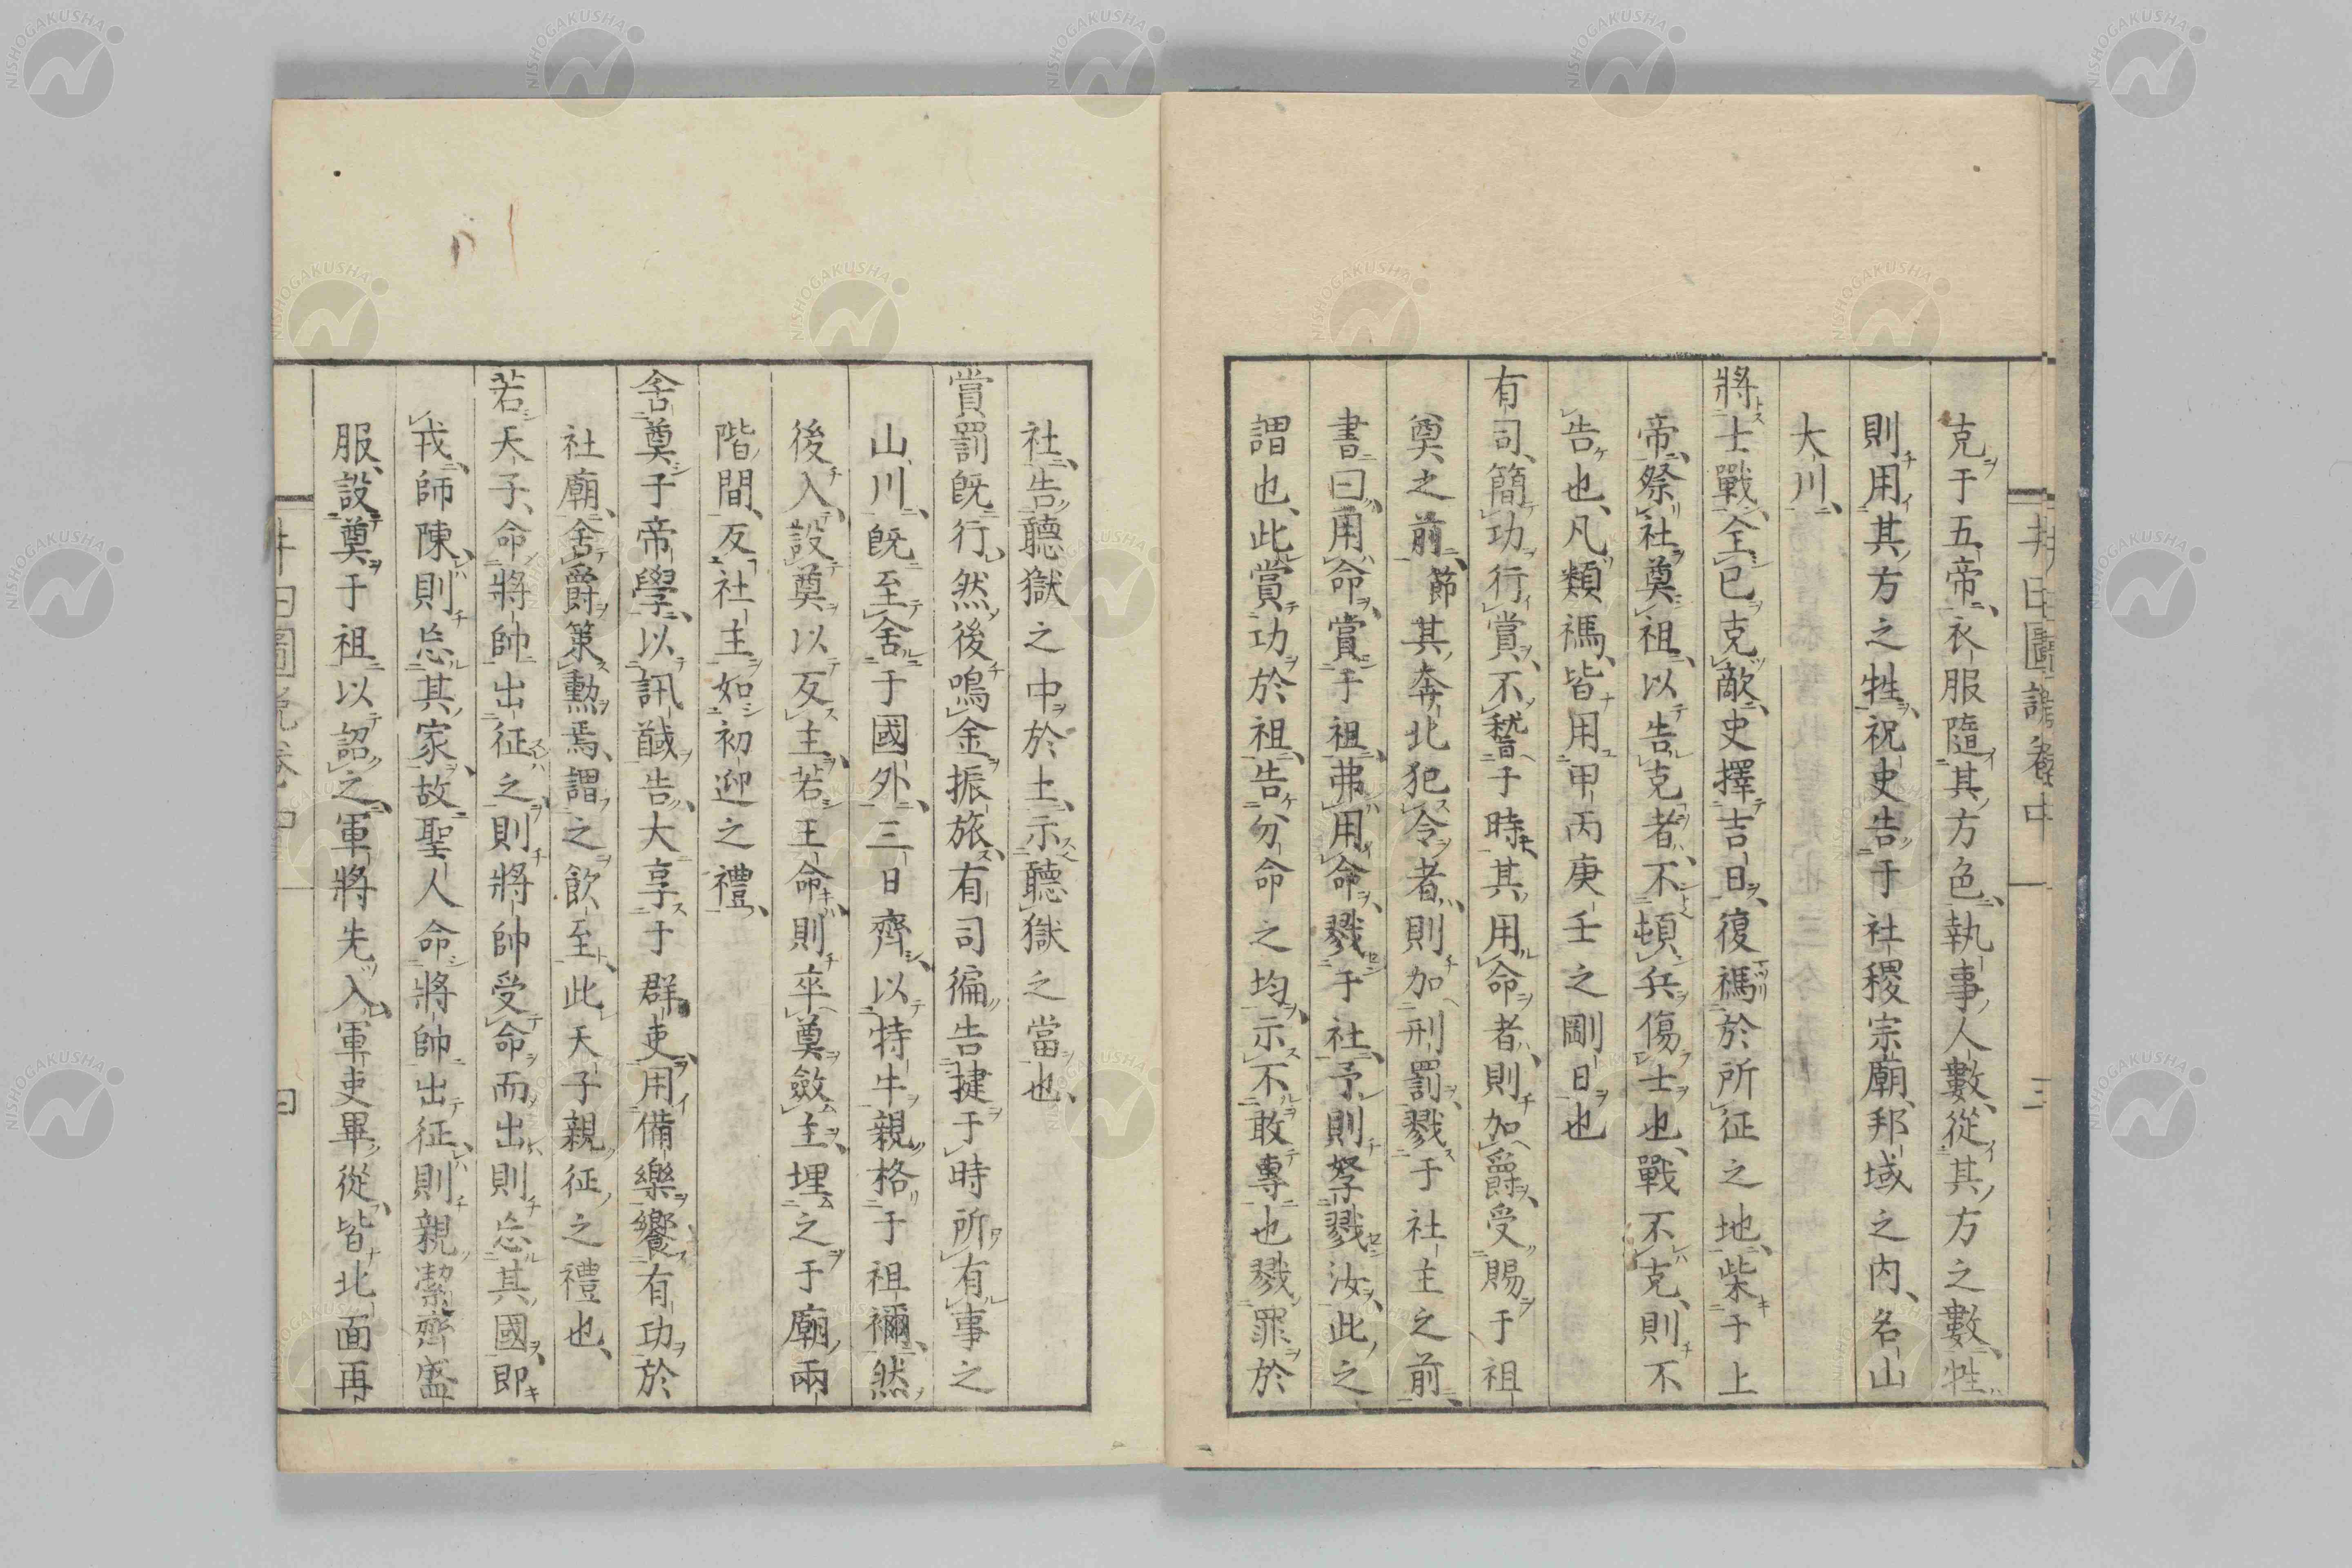 井田圖說卷中 三
克于五帝衣服隨其方色執事人數從其方之數牲
則用其方之牲祝史告于社稷宗廟邦域之内名山
大川
將士戰全已克敵史擇吉日復禡於所征之地柴于上
帝祭社奠祖以告克者不頓兵傷士也戰不克則不
告也凡類禡皆用甲丙庚壬之剛日也
有司簡功行賞不稽于時其用命者則加爵受賜于祖
奠之前節其奔北犯令者則加刑罰戮于社主之前
書曰用命賞于祖弗用命戮于社予則孥戮汝此之
謂也此賞功於祖告分命之均示不敢專也戮罪於
社告聽獄之中於土示聽獄之當也
賞罰既行然後鳴金振旅有司徧告捷于時所有事之
山川既至舍于國外三日齊以特牛親格于祖禰然
後入設奠以反主若王命則卒奠斂主埋之于廟兩
階間反社主如初迎之禮
舍奠于帝學以訊馘告大享于群吏用備樂饗有功於
社廟舍爵策勲焉謂之飲至此天子親征之禮也
若天子命將帥出征之則將帥受命而出則忘其國即
戎師陳則忘其家故聖人命將帥出征則親潔齊盛
服設奠于祖以詔之軍將先入軍吏畢從皆北面再
井田圖說卷中 四
NISHOGAKUSHA